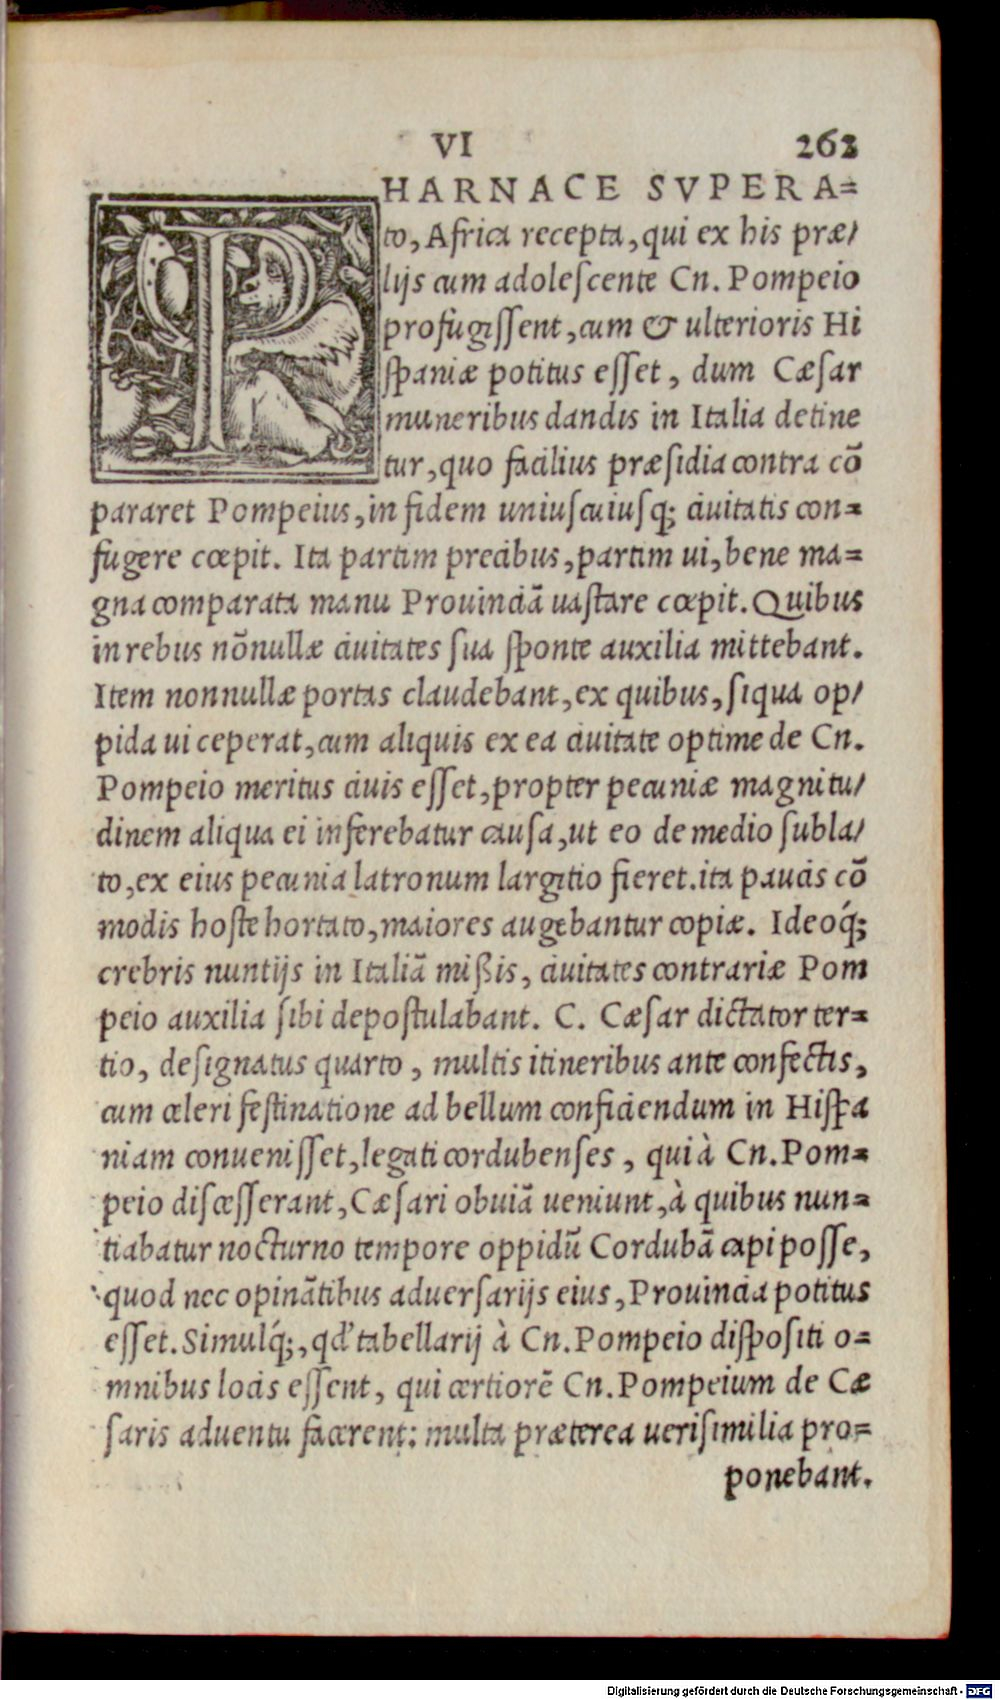 VI 262
PHARNACE SVPERA=
to, Africa recepta, qui ex his præ/
lijs cum adolescente Cn. Pompeio
profugissent, cum & ulterioris Hi
spaniæ potitus esset, dum Cæsar
muneribus dandis in Italia detine
tur, quo facilius præsidia contra cō
pararet Pompeius, in fidem uniuscuiusq; ciuitatis con=
fugere cœpit. Ita partim precibus, partim ui, bene ma=
gna comparata manu Prouinciā uastare cœpit. Quibus
in rebus nōnullæ ciuitates sua sponte auxilia mittebant.
Item nonnullæ portas claudebant, ex quibus, siqua op/
pida ui ceperat, cum aliquis ex ea ciuitate optime de Cn.
Pompeio meritus ciuis esset, propter pecuniæ magnitu/
dinem aliqua ei inferebatur causa, ut eo de medio subla/
to, ex eius pecunia latronum largitio fieret. ita paucis cō
modis hoste hortato, maiores augebantur copiæ. Ideoq́;
crebris nuntijs in Italiā mißis, ciuitates contrariæ Pom
peio auxilia sibi depostulabant. C. Cæsar dictator ter=
tio, designatus quarto, multis itineribus ante confectis,
cum celeri festinatione ad bellum conficiendum in Hispa
niam conuenisset, legati cordubenses, qui à Cn. Pom=
peio discesserant, Cæsari obuiā ueniunt, à quibus nun=
tiabatur nocturno tempore oppidū Cordubā capi posse,
quod nec opinātibus aduersarijs eius, Prouincia potitus
esset. Simulq́;, qđ tabellarij à Cn. Pompeio dispositi o=
mnibus locis essent, qui certiorē Cn. Pompeium de Cæ
saris aduentu facerent: multa præterea uerisimilia pro=
ponebant.
Digitalisierung gefördert durch die Deutsche Forschungsgemeinschaft - DFG